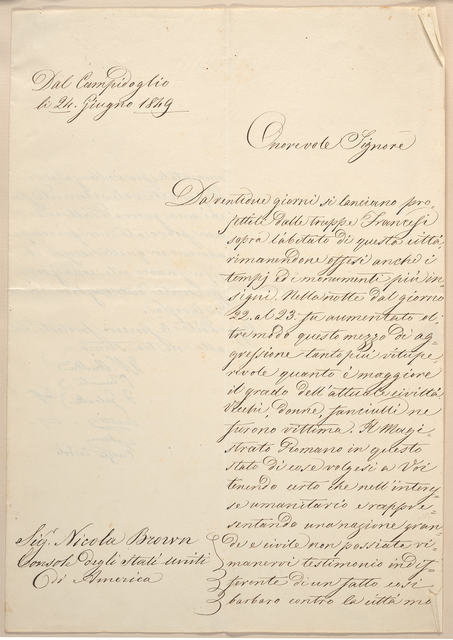 Dal Campidoglio
li 24. Giugno 1849
Onorevole Signore
Da ventidue giorni si lanciano pro-
jettili dalle truppe Francesi
sopra l'abitato di questa città,
rimanendone offesi anche i
tempj ed i monumenti più in-
signi. Nella notte dal giorno
22. al 23. fu aumentato ol-
tremodo questo mezzo di ag-
gressione tanto più vitupe-
revole quanto è maggiore
il grado dell'attuale civiltà
Vecchi, donne, fanciulli ne
furono vittima. Il Magi-
strato Romano in questo
stato di cose volgesi a Voi
tenendo certo che nell'interes-
se umanitario e rappre-
sentando una nazione gran-
de e civile non possiate ri-
manervi testimonio indif-
ferente di un fatto così
barbaro contro la città mo
Sigr. Nicola Brown
Console degli Stati uniti
di America